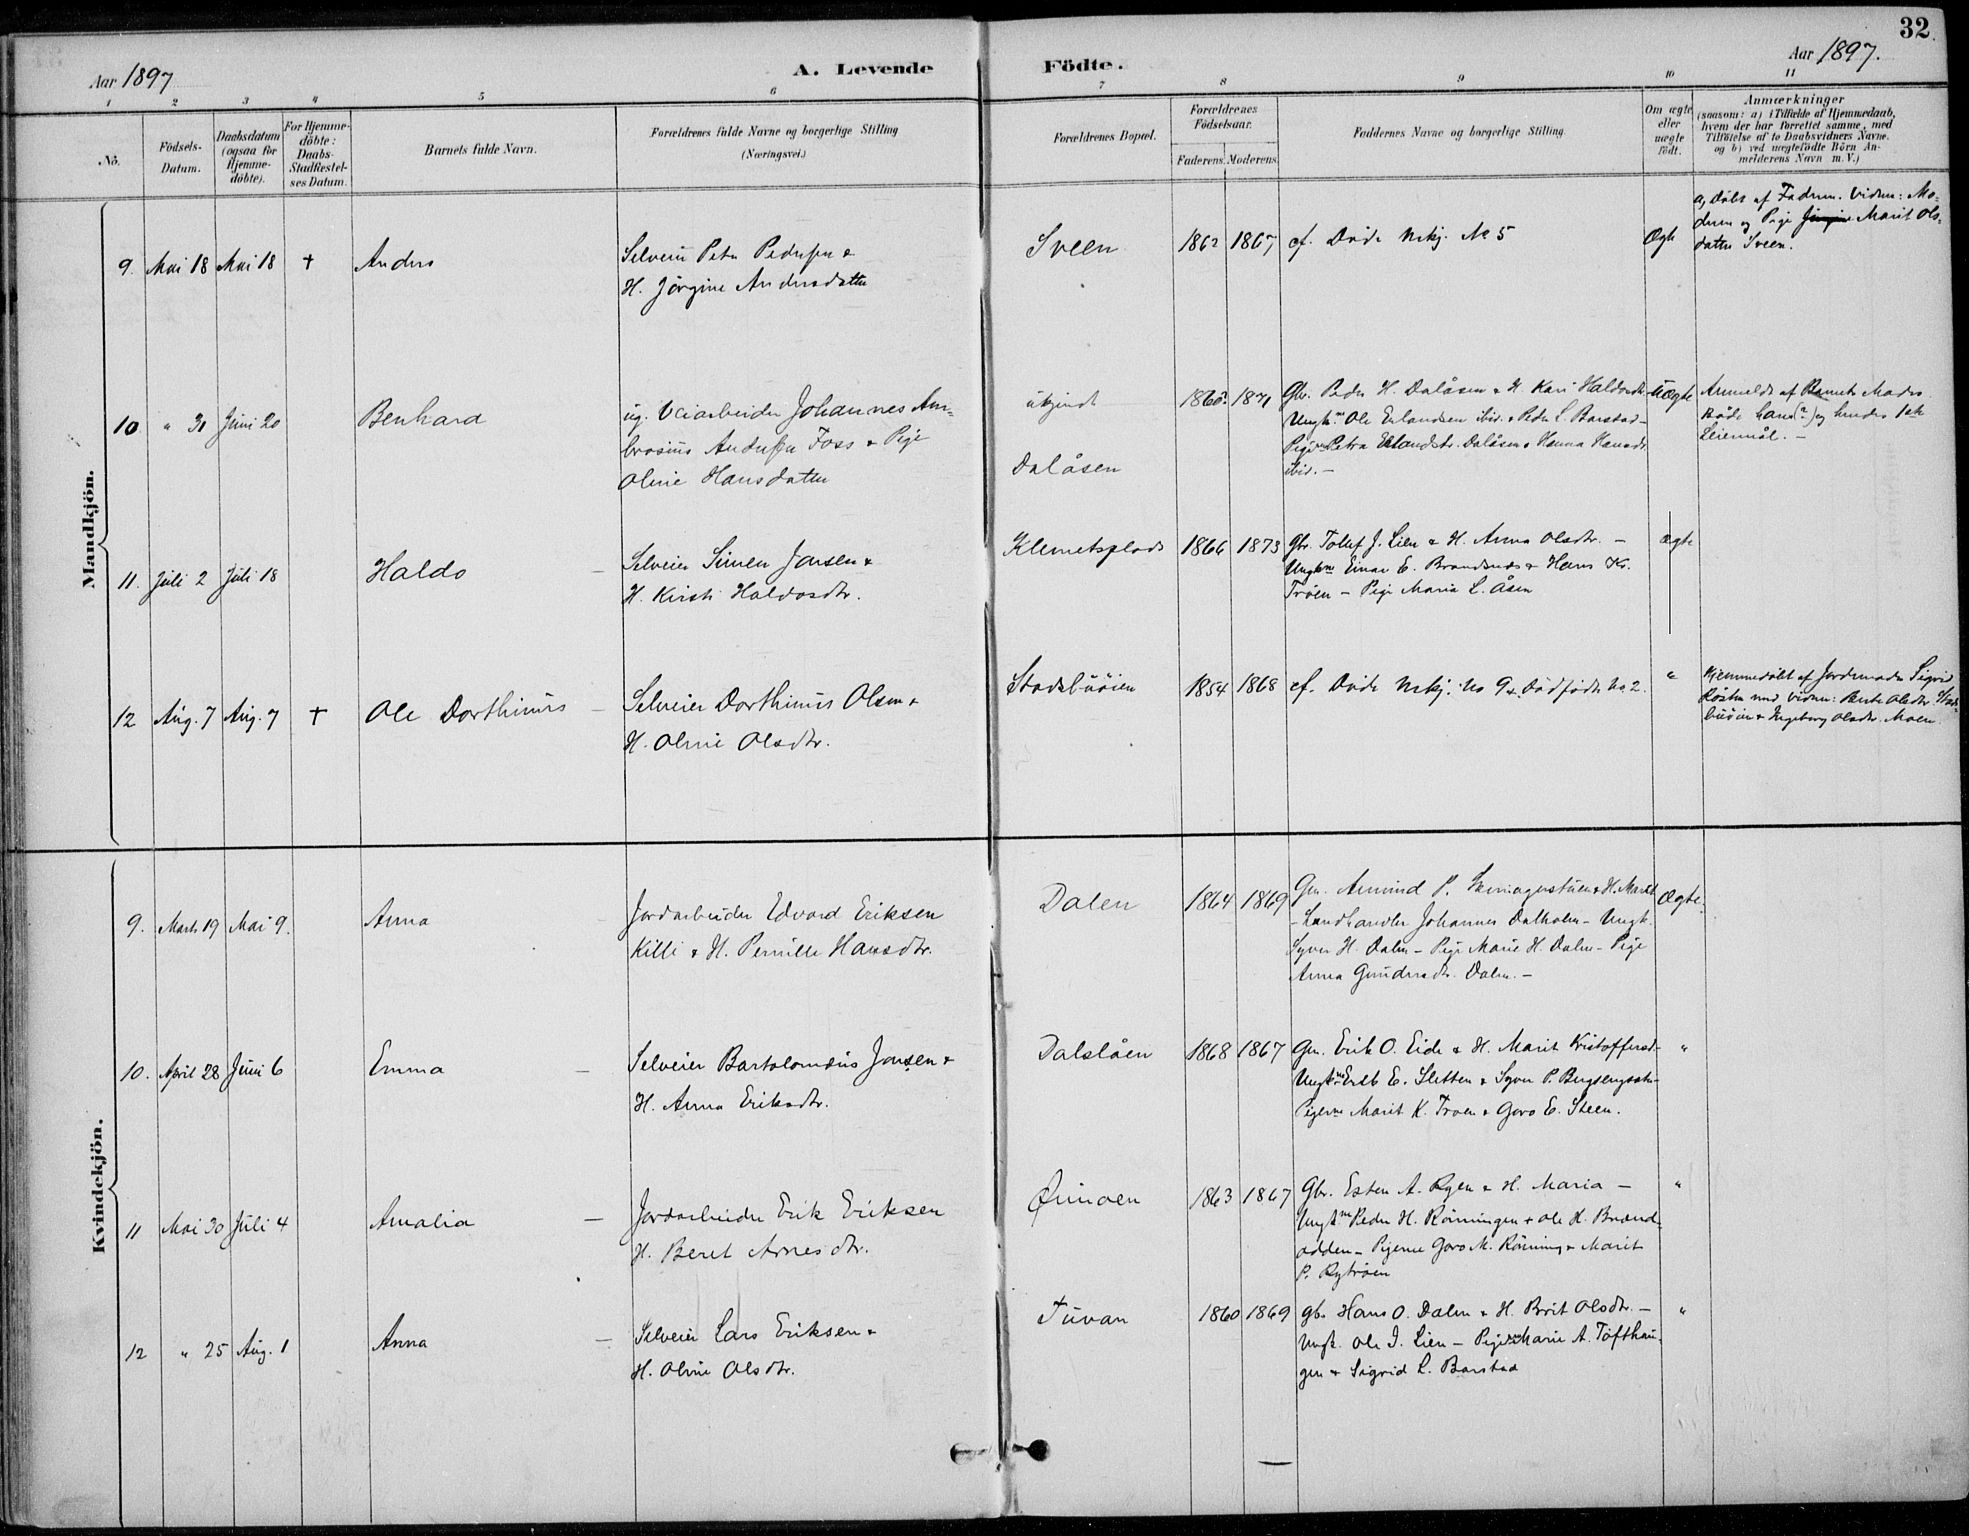 32.
Aar 1897
A. Levende
Födte.
Aar 1897.
1 2 3 4 5 6 7 8 9 10 11
No.
Födsels-
Datum.
Daabsdatum
(ogsaa for
Hjemme-
döbte).
For Hjemme-
döbte:
Daabs-
Stadfæstel-
ses Datum.
Barnets fulde Navn.
Forældrenes fulde Navne og borgerlige Stilling
(Næringsvei.)
Forældrenes Bopæl.
Forældrenes
Födselsaar.
Faderens. Moderens.
Faddernes Navne og borgerlige Stilling.
Om ægte
eller
uægte
födt.
Anmærkninger
(saasom: a) i Tilfælde af Hjemmedaab,
hvem der har forrettet samme, med
Tilföielse af to Daabsvidners Navne.
og b) ved uægtefödte Börn An-
melderens Navn m. V.)
Mandkjön.
9. Mai 18 Mai 18 + Anders
Selveier Peter Pedersen &
H. Jörgine Andersdatter
Sveen 1862 1867 cf. Döde Mskj. No 5 Ægte
a, Döbt af Faderen. Vidner: Mo-
deren og Pige Marit Ols-
datter Sveen.
10 " 31 Juni 20 Benhard
ug. Veiarbeider Johannes Am-
brosius Andersen Foss & Pige
Oline Hansdatter
ukjendt
Dalåsen
1865? 1871
Gbr. Peder H. Dalåsen & H. Kari Haldosdtr.
Ungk.m Ole Erlandsen ibid. & Peder L. Barstad -
Pigerne Petra Erlandsdtr. Dalåsen & Hanna Hansdtr.
ibid. -
Uægte
Anmeldt af Barnets Moder.
Både hans (?) og hendes 1ste
Leiermål. -
11. Juli 2 Juli 18 Haldo
Selveier Simen Jonsen &
H. Kirsti Haldosdtr.
Klemetsplads 1866 1873
Gbr. Tollef J. Lien & H. Anna Olsdtr. -
Ungkm Einar E. & Hans Kr.
Tröen - Pige Maria L. Åsen
Ægte
12 Aug. 7 Aug. 7 + Ole Dorthinus -
Selveier Dorthinus Olsen &
H. Oline Olsdtr.
Stadsbuöien 1854 1868 cf. Döde Mskj. No 9 & Dödfödte No 2. "
Hjemmedöbt af Jordemoder Sigrid
med Vidner: Olsdtr. Stads-
buöien & Ingeborg Olsdtr. Moen.
Kvindekjön.
9. Marts 19 Mai 9. Anna
Jordarbeider Edvard Eriksen
Killi & H. Pernille Hansdtr.
Dalen 1864 1869
Gm. Amund P. & H. Marit
- Landhandler Johannes Dalholm - Ungk.
Syver H. Dalen - Pige Marie H. Dalen - Pige
Anna Gundersdtr. Dalen. -
Ægte.
10. April 28 Juni 6 Emma -
Selveier Bartolomæus Jonsen &
H. Anna Eriksdtr.
Dalslåen 1868 1867
Gm. Erik O. Eide & H. Marit Kristoffersd. -
Ungkm E. Sletten & Syver P. -
Pigerne Marit K. Troen & Goro E. Steen.
"
11 Mai 30 Juli 4 Amalia -
Jordarbeider Erik Eriksen
H. Beret Arnesdtr.
Örimoen 1863 1867
Gbr. Esten A. Rgen & H. Maria -
Ungk.m Peder H. Rönningen & Ole H. Brænd-
odden - Pigerne Goro M. Rönning & Marit
P. Rytröen
"
12 " 25 Aug. 1 Anna -
Selveier Lars Eriksen &
H. Oline Olsdtr.
Tuvan 1860 1869
Gbr. Hans O. Dalen & H. Brit Olsdtr. -
Ungk. Ole I. Lien - Pigerne Marie A. Töfthau-
gen & Sigrid L. Barstad
"